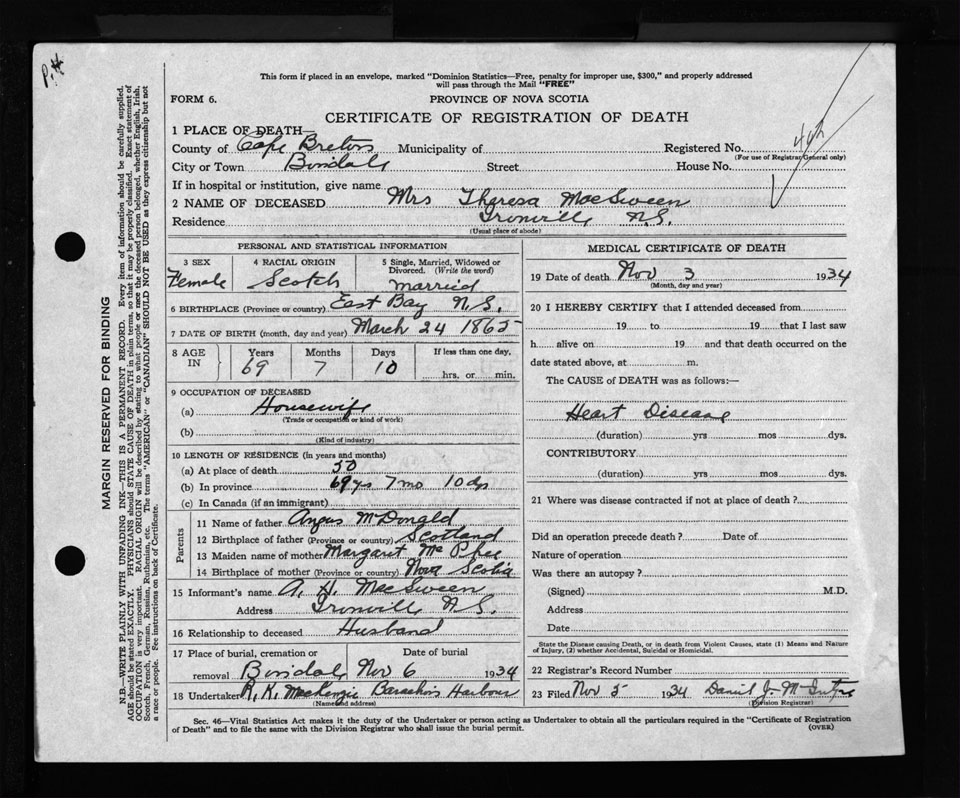 P.H
This form if placed in an envelope, marked "Dominion Statistics—Free, penalty for improper use, $300," and properly addressed
will pass through the Mail "FREE"
FORM 6.
PROVINCE OF NOVA SCOTIA
CERTIFICATE OF REGISTRATION OF DEATH
1 PLACE OF DEATH—
County of Cape Breton Municipality of Registered No.
(For use of Registrar General only)
City or Town Boisdale Street House No.
If in hospital or institution, give name
2 NAME OF DECEASED Mrs Theresa MacSween
Residence Ironville N.S.
(Usual place of abode)
PERSONAL AND STATISTICAL INFORMATION
3 SEX 4 RACIAL ORIGIN 5 Single, Married, Widowed or Divorced. (Write the word)
Female Scotch married
6 BIRTHPLACE (Province or country) East Bay N.S.
7 DATE OF BIRTH (month, day and year) March 24 1865
8 AGE IN Years Months Days If less than one day,
69 7 10 hrs. or min.
9 OCCUPATION OF DECEASED
(a) Housewife
(Trade or occupation or kind of work)
(b)
(Kind of industry)
10 LENGTH OF RESIDENCE (in years and months)
(a) At place of death 50
(b) In province 69 yrs 7 mo 10 dys
(c) In Canada (if an immigrant)
Parents
11 Name of father Angus McDonald
12 Birthplace of father (Province or country) Scotland
13 Maiden name of mother Margaret McPhee
14 Birthplace of mother (Province or country) Nova Scotia
15 Informant's name A. H. MacSween
Address Ironville N.S.
16 Relationship to deceased Husband
17 Place of burial, cremation or removal Date of burial
Boisdale Nov 6 1934
18 Undertaker R. K. MacKenzie Barachois Harbour
(Name and address)
MEDICAL CERTIFICATE OF DEATH
19 Date of death Nov 3 1934
(Month, day and year)
20 I HEREBY CERTIFY that I attended deceased from
19 to 19 that I last saw
h alive on 19 and that death occurred on the
date stated above, at m.
The CAUSE of DEATH was as follows:—
Heart Disease
(duration) yrs mos dys.
CONTRIBUTORY
(duration) yrs mos dys.
21 Where was disease contracted if not at place of death?
Did an operation precede death? Date of
Nature of operation
Was there an autopsy?
(Signed) M.D.
Address
Date
State the Disease causing Death, or in death from Violent Causes, state (1) Means and Nature
of Injury, (2) whether Accidental, Suicidal or Homicidal.
22 Registrar's Record Number
23 Filed Nov 5 1934 Daniel J. McIntyre
(Division Registrar)
Sec. 46—Vital Statistics Act makes it the duty of the Undertaker or person acting as Undertaker to obtain all the particulars required in the "Certificate of Registration
of Death" and to file the same with the Division Registrar who shall issue the burial permit.
(OVER)
MARGIN RESERVED FOR BINDING
N.B.—WRITE PLAINLY WITH UNFADING INK—THIS IS A PERMANENT RECORD. Every item of information should be carefully supplied.
AGE should be stated EXACTLY. PHYSICIANS should STATE CAUSE OF DEATH in plain terms, so that it may be properly classified. Exact statement of
OCCUPATION is very important. RACIAL ORIGIN will be described by stating to what people or race the deceased person belonged, whether English, Irish,
Scotch, French, German, Russian, Ruthenian, etc. The terms "AMERICAN" or "CANADIAN" SHOULD NOT BE USED as they express citizenship but not
a race or people. See instructions on back of Certificate.